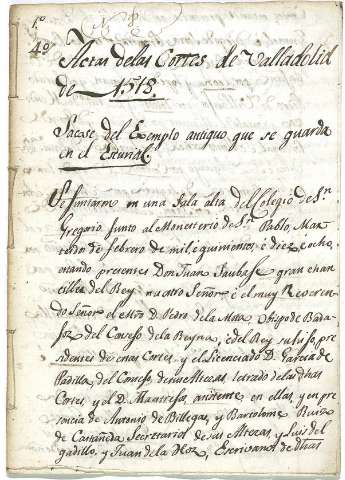 1º
4º
Actas de las Cortes de Valladolid
de 1518.
Sacose del Exemplo antiguo que se guarda
en el Escurial.
Se juntaron en una Sala alta del Colegio de Sn.
Gregorio junto al Monesterio de Sn. Pablo, Mar
tes dos de febrero de mil e quinientos, e diez e ocho,
estando presentes Don Juan Saubaje gran chan
ciller del Rey nuestro Señor é el muy Reveren
do Señor el Mtro D. Pedro de la Mota Obispo de Bada-
joz del Consejo de la Reyna, é del Rey su hijo, pre
sidentes de estas Cortes, y el Licenciado D. Garcia de
Padilla del Consejo de sus Altezas, letrado de las dhas
Cortes, y el D. asistente en ellas, y en pre
sencia de Antonio de Billegas, y Bartolome Ruiz
de Castañeda Secretarios de sus Altezas, y Luis del
gadillo, y Juan de la Hoz, Escrivanos de dhas